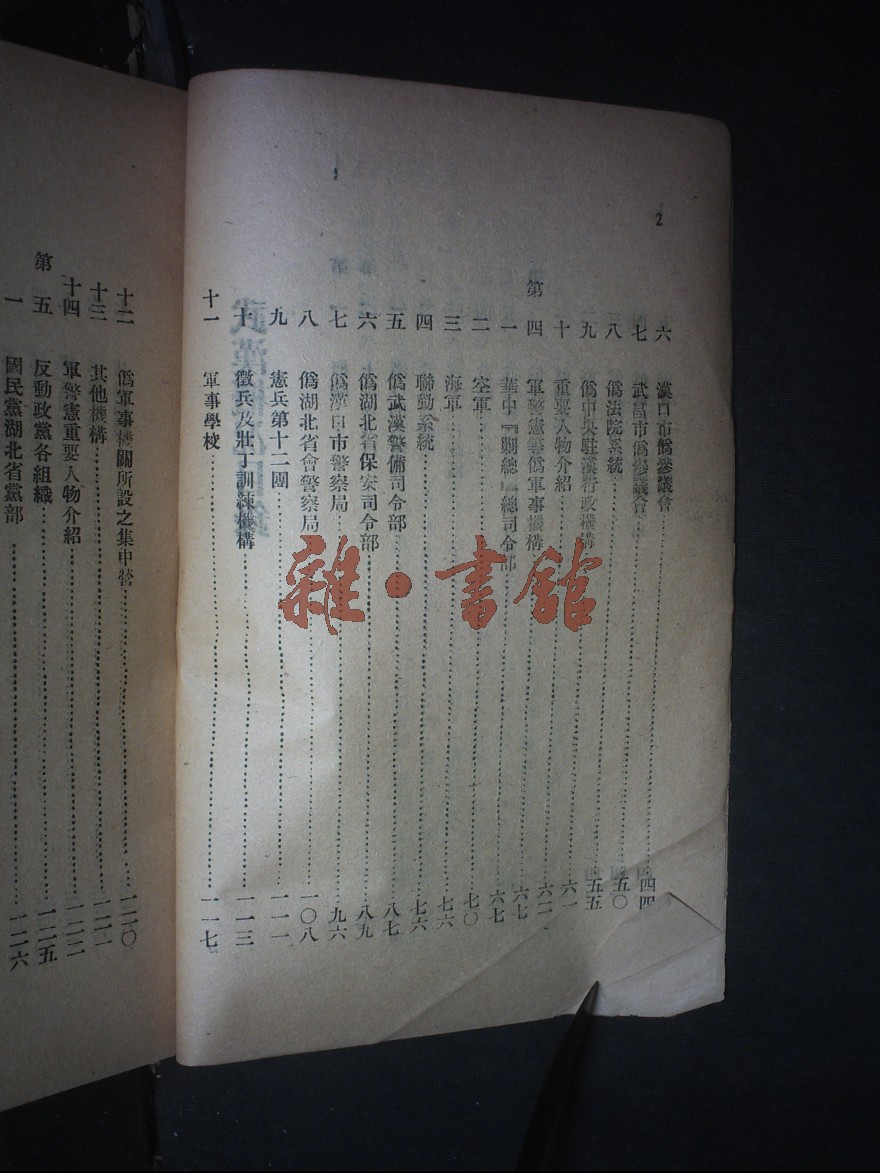 2
六 漢口市僞參議會……四四
七 武昌市僞參議會……五〇
八 僞法院系統……五五
九 僞中央駐漢行政機構……六一
十 重要人物介紹……六二
第四 軍警憲等僞軍事機構……六七
一 華中『剿總』總司令部……六七
二 空軍……七〇
三 海軍……七六
四 聯勤系統……七六
五 僞武漢警備司令部……八七
六 僞湖北省保安司令部……八九
七 僞漢口市警察局……九六
八 僞湖北省會警察局……一〇八
九 憲兵第十二團……一一一
十 徵兵及壯丁訓練機構……一一三
十一 軍事學校……一一七
十二 僞軍事機關所設之集中營……一二〇
十三 其他機構……一二一
十四 軍警憲重要人物介紹……一二二
第五 反動政黨各組織……一二五
一 國民黨湖北省黨部……一二六
雜·書館